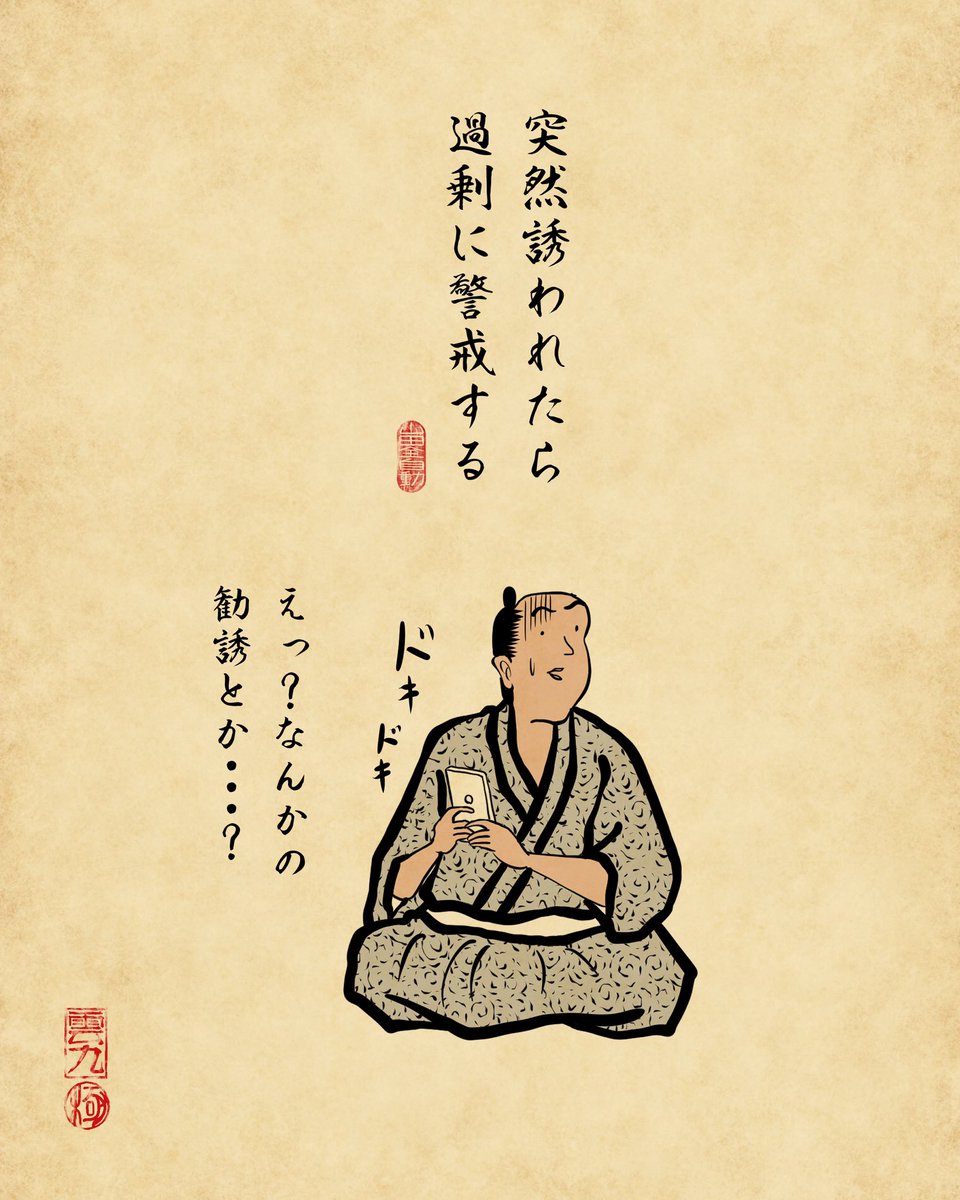 突然誘われたら
過剰に警戒する
ドキ
ドキ
えっ?なんかの
勧誘とか・・・?